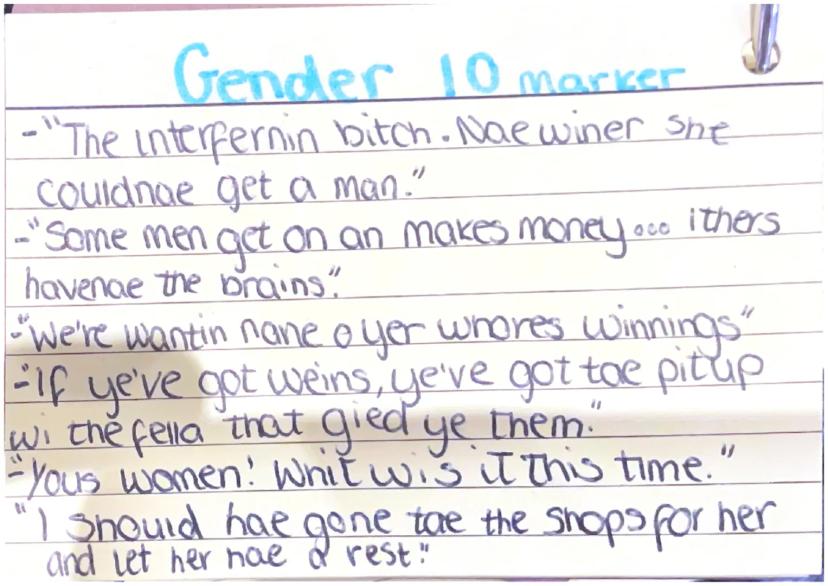 Gender 10 marker
- "The interfernin bitch. Nae winer she
couldnae get a man."
- "Some men get on an makes money... ithers
havenae the brains".
- "We're wantin nane o yer whores winnings"
- "If ye've got weins, ye've got tae pit up
wi the fella that gied ye them."
- "Yous women! Whit wis it this time."
"I should hae gone tae the shops for her
and let her hae a rest."